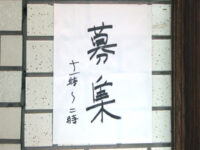 募集
十一時～二時